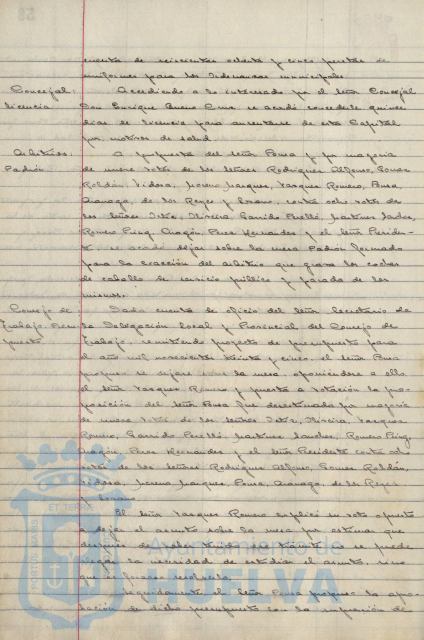 cuenta de seiscientas ochenta y cinco pesetas de
uniformes para los Ordenanzas municipales
Concejal: Accediendo a lo interesado por el señor Concejal
licencia Don Enrique Bueno Cruz se acordó concederle quince
días de licencia para ausentarse de esta Capital
por motivos de salud.
Arbitrios: A propuesta del señor Ponce y por mayoría
Padrón de nueve votos de los señores Rodríguez Alfonso, Gómez
Roldán, Tidosa, Moreno Márquez, Vázquez Romero, Ponce,
de los Reyes y Lozano, contra ocho votos de
los señores Oliveira, Garrido Perelló, Martínez Sánchez,
Romero Aragón, Pérez Hernández y el señor Presiden-
te, se acordó dejar sobre la mesa Padrón formado
para la exacción del arbitrio que grava los coches
de caballo de servicio público y parada de los
mismos.
Consejo de Dada cuenta de oficio del señor Secretario de
Trabajo. Presu la Delegación Local y Provincial del Consejo de
puesto Trabajo, remitiendo proyecto de presupuesto para
el año mil novecientos treinta y cinco, el señor Ponce
propuso se dejara sobre la mesa, oponiéndose a ello
el señor Vázquez Romero y puesta a votación la pro-
posición del señor Ponce fue desestimada por mayoría
de nueve votos de los señores Oliveira, Vázquez
Romero, Garrido Perelló, Martínez Sánchez, Romero
Aragón, Pérez Hernández y el señor Presidente contra ocho
votos de los señores Rodríguez Alfonso, Gómez Roldán,
Tidosa, Moreno Márquez, Ponce, de los Reyes
y Lozano
El señor Vázquez Romero explicó su voto opuesto
a dejar el asunto sobre la mesa por estimar que
después de no se puede
alegar la necesidad de estudiar el asunto, sino
que es forzoso resolverlo.
Seguidamente el señor Ponce propuso la apro-
bación de dicho presupuesto con la supresión de
PORTUS MARIS
ET TERRE
Ayuntamiento de
HUELVA